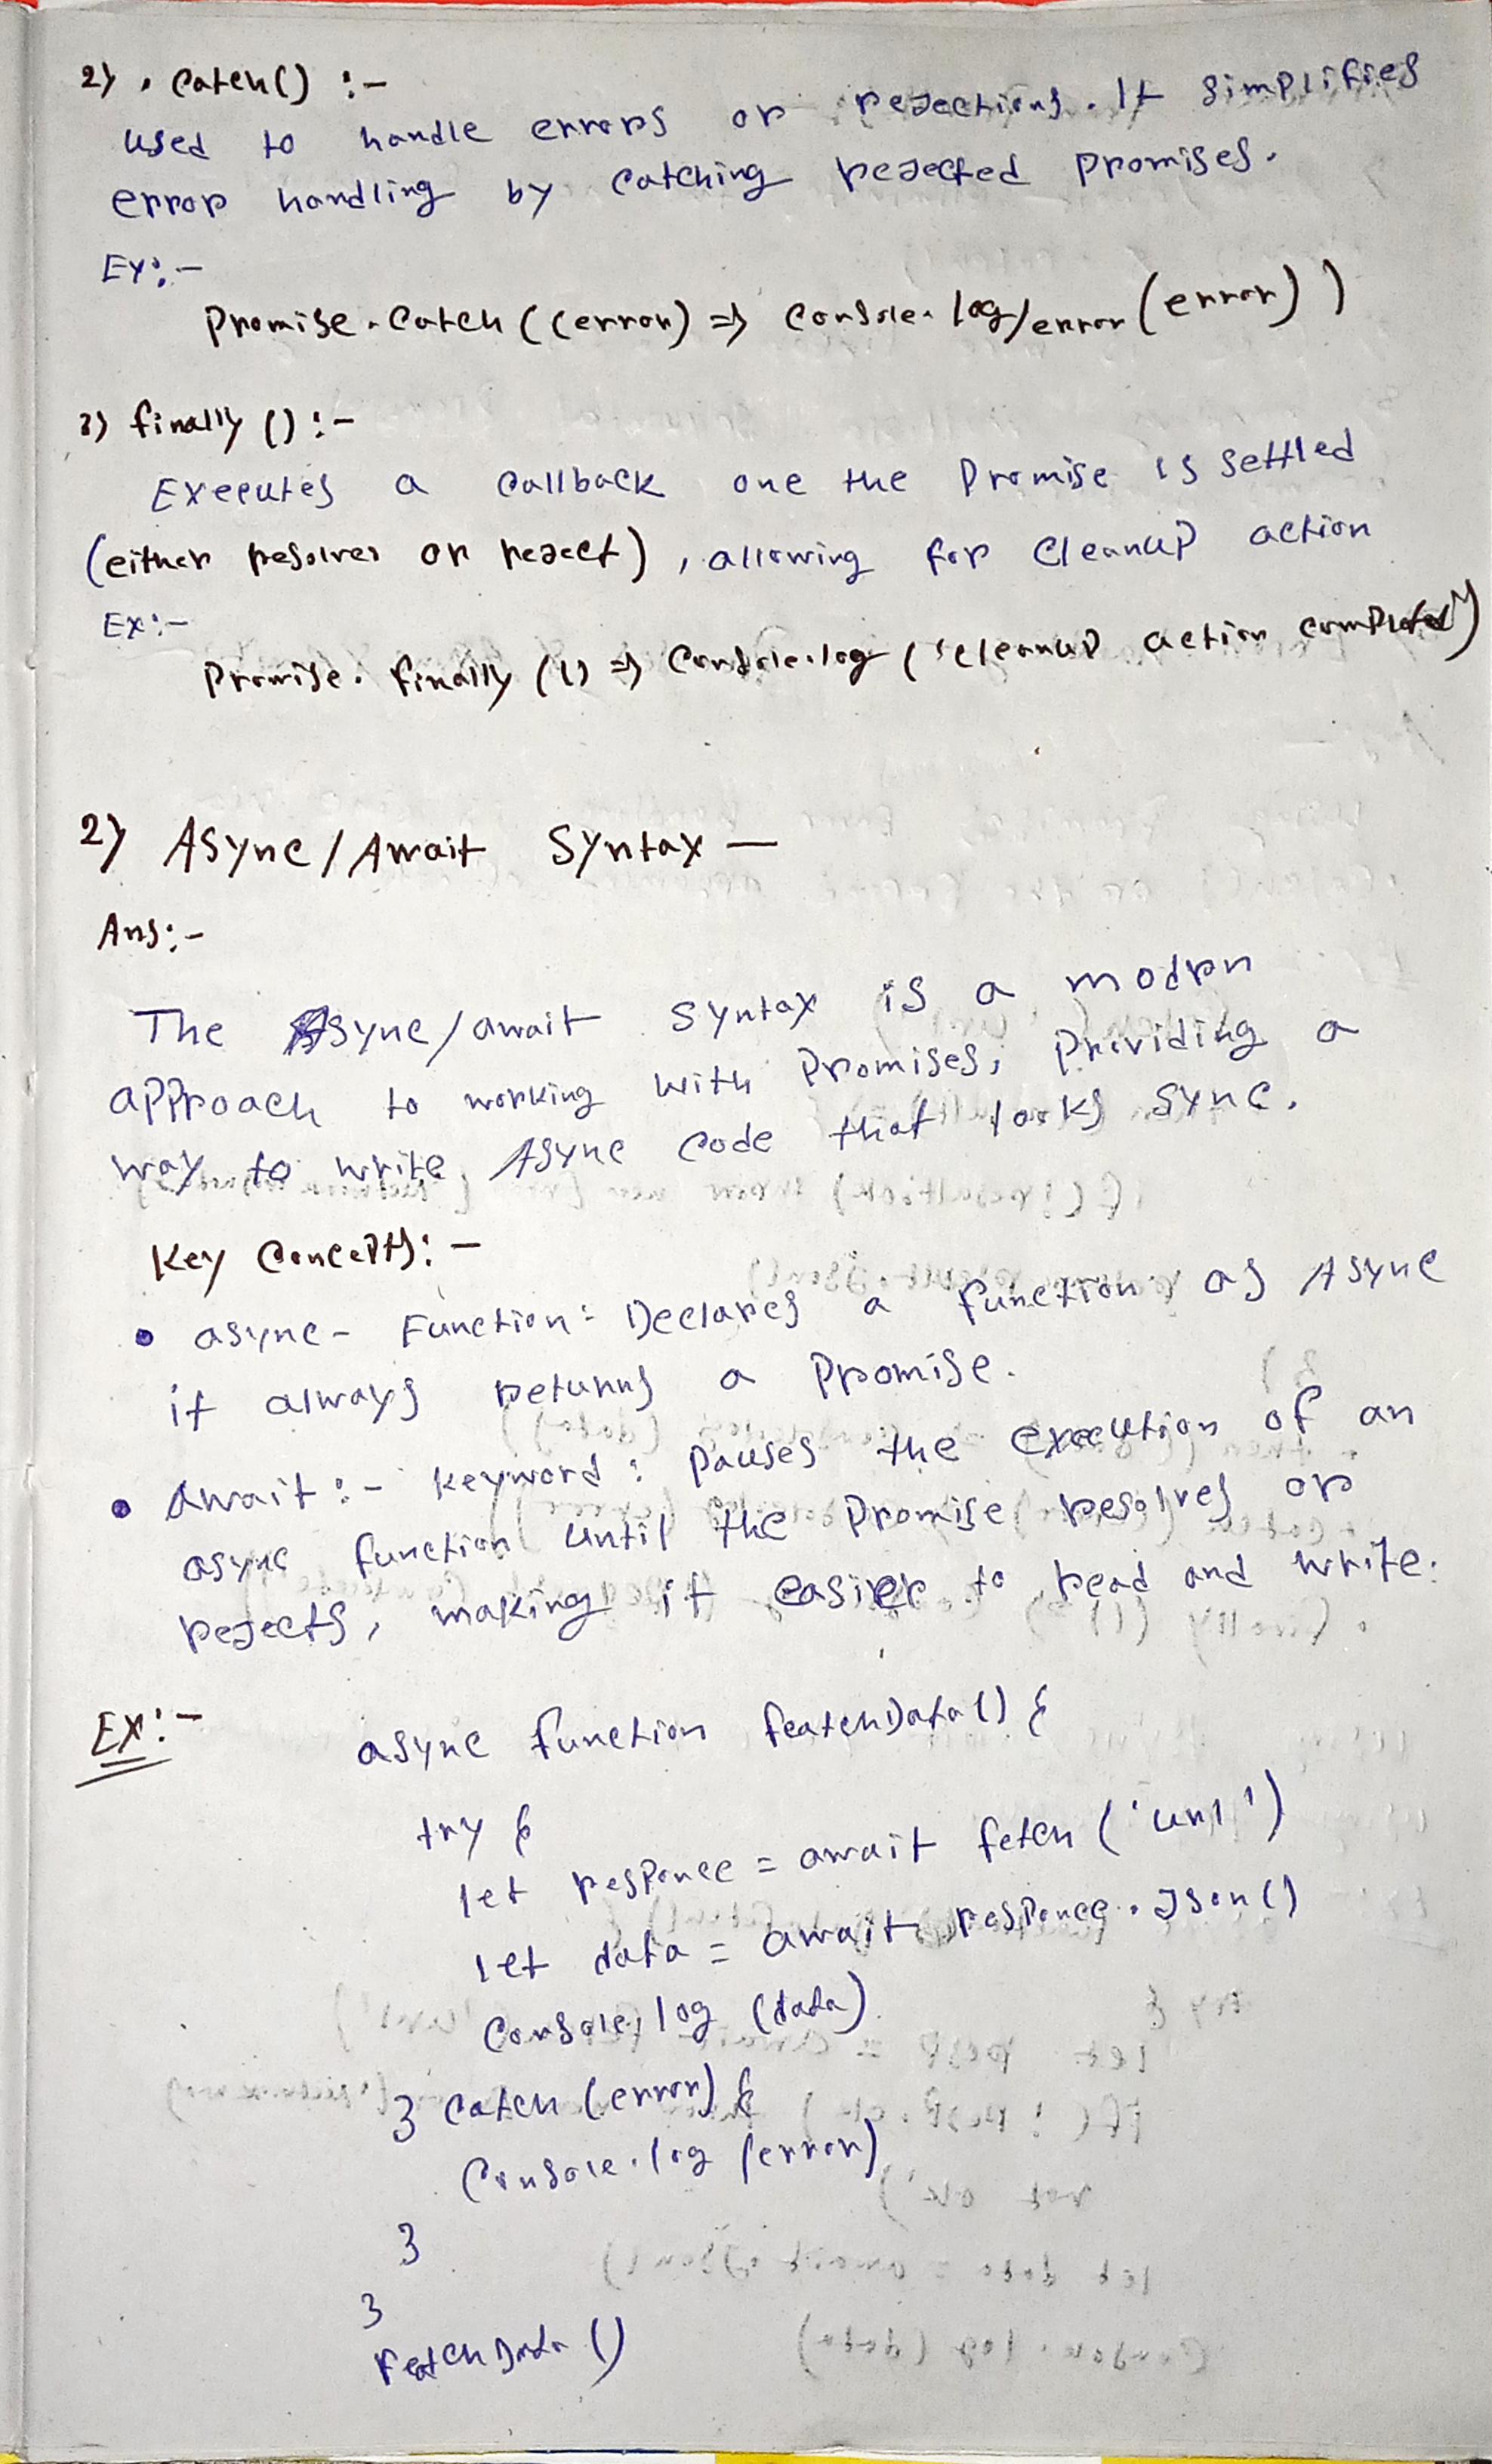 2) . Catch() :-
used to handle errors or rejections. It simplifies
error handling by catching rejected promises.
EX:-
Promise.Catch ((error) => Console.log/error (error))
3) finally () :-
Executes a callback one the Promise is settled
(either resolves or reject), allowing for cleanup action
EX:-
Promise. finally (() => Console.log ('cleanup action completed')
2) ASync / Await Syntax —
Ans:-
The ASync/await syntax is a modrn
approach to working with Promises, Providing a
way to write ASync code that looks sync.
Key Concepts: -
• async - Function: Declares a function as ASync
it always returns a promise.
• Await :- keyword : pauses the execution of an
async function until the Promise resolves or
rejects, making it easier to read and write.
EX:-
async function featchData() {
try {
let responce = await fetch ('url')
let data = await responce.Json()
Console.log (data)
} Catch (error) {
Console.log (error)
}
}
Featch Data ()